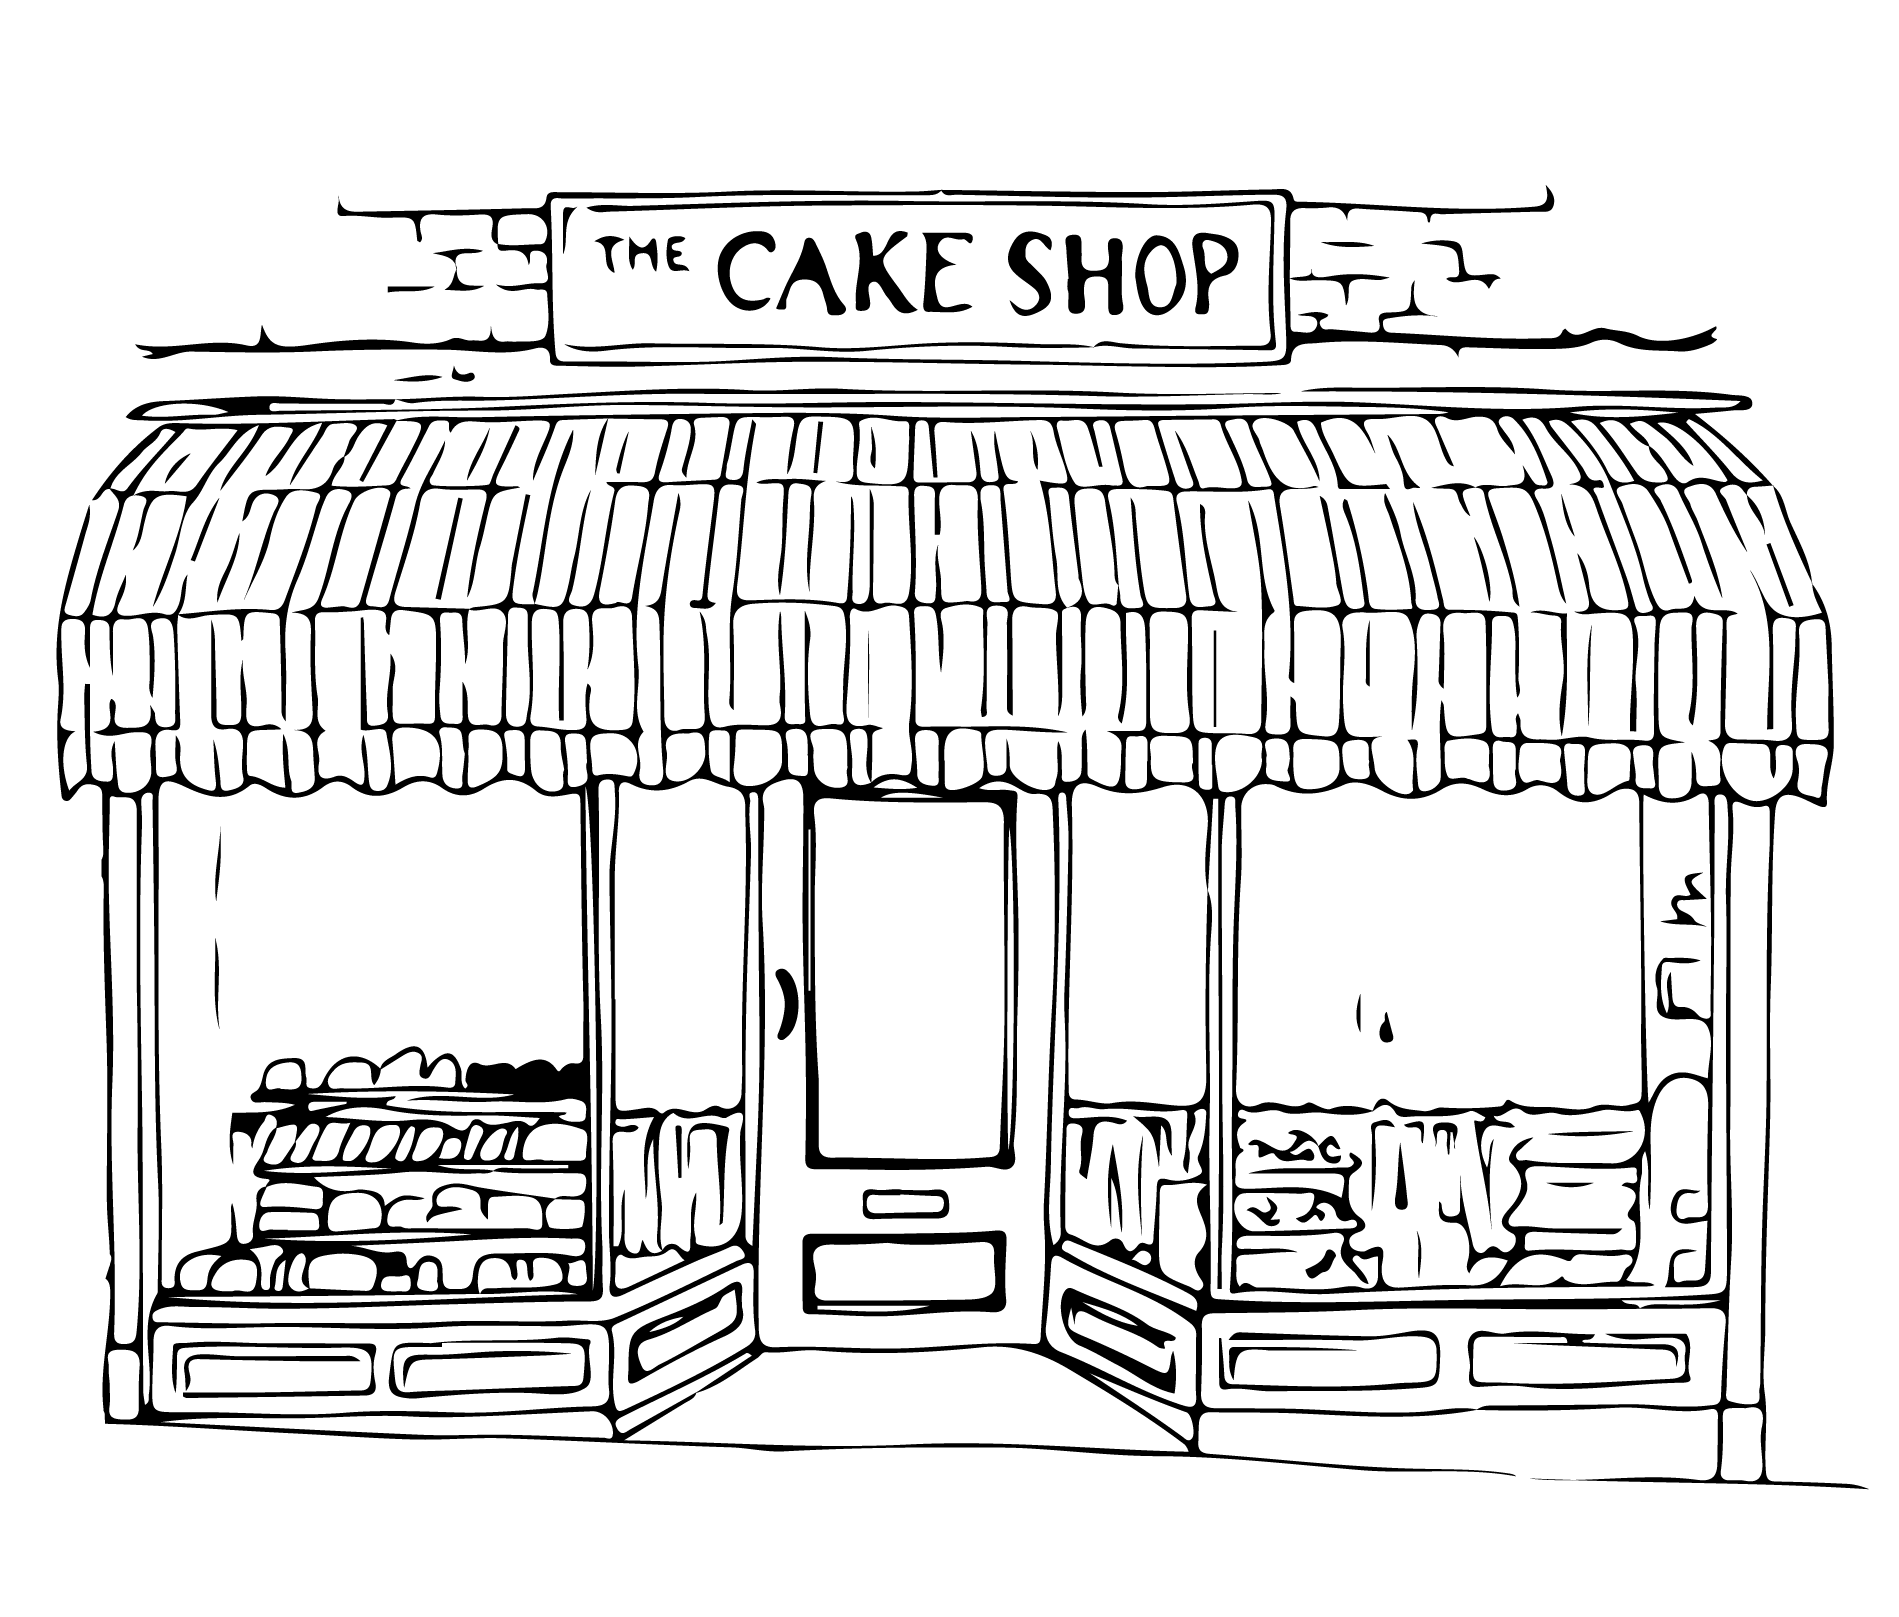 THE CAKE SHOP